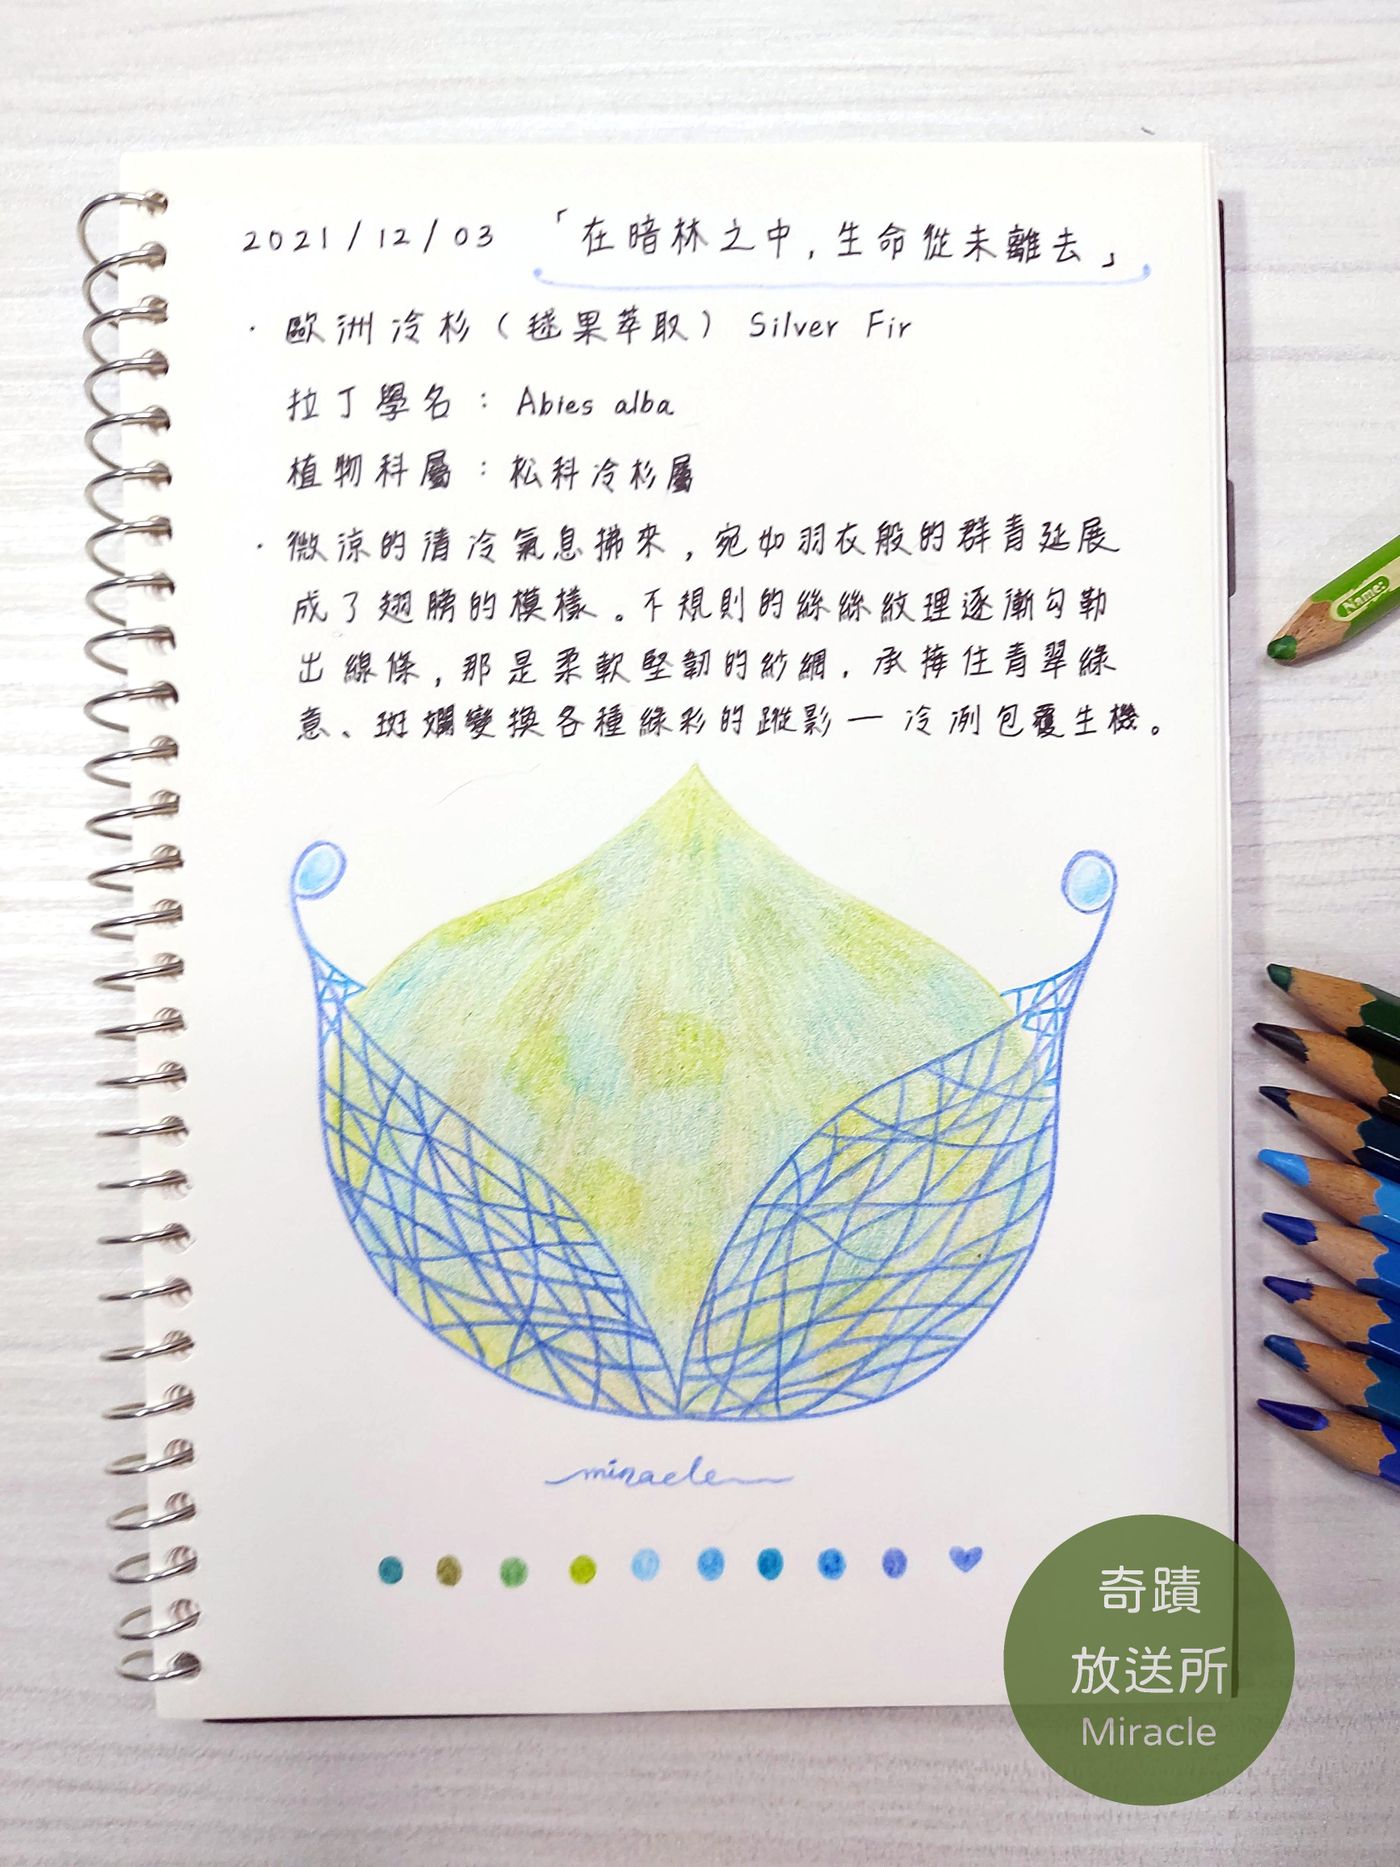 2021/12/03 「在暗林之中，生命從未離去」
· 歐洲冷杉（毬果萃取） Silver Fir
拉丁學名：Abies alba
植物科屬：松科冷杉屬
· 微涼的清冷氣息拂來，宛如羽衣般的群青延展
成了翅膀的模樣。不規則的絲絲紋理逐漸勾勒
出線條，那是柔軟堅韌的紗網，承接住青翠綠
意、斑斕變換各種綠彩的蹤影—冷冽包覆生機。
miracle
Name:
奇蹟
放送所
Miracle